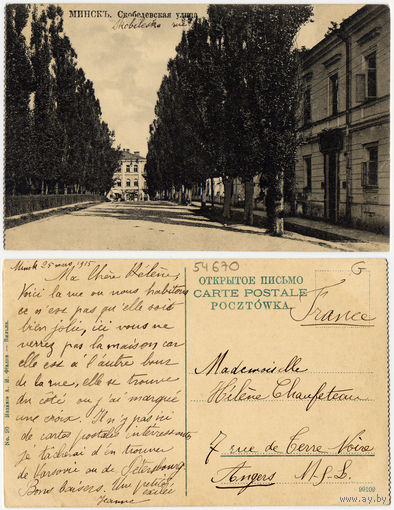 МИНСКЪ. Скобелевская улица
Skobeleska
Minsk 25 1915
Ma Chère Hélène,
Voici la rue ou nous habitons
ce n'est pas qu'elle soit
bien jolie, ici vous ne
verrez pas la maison car
elle est a l'autre bout
de la rue, elle se trouve
du côté ou j'ai marqué
une croix. Il n'y pas ici
de cartes postales interessantes
je tâcherai d'en trouver
de Varsovie ou de Pétersbourg.
Bons baisers. Une petite
exilée
Jeanne
No. 20 Издание А. И. Фіалко — Вильна.
54670
G
ОТКРЫТОЕ ПИСЬМО
CARTE POSTALE
POCZTÓWKA.
France
Mademoiselle
Hélène Chaupeteau
7 rue de Terre Noire
Angers M.&L.
99109
www.ay.by